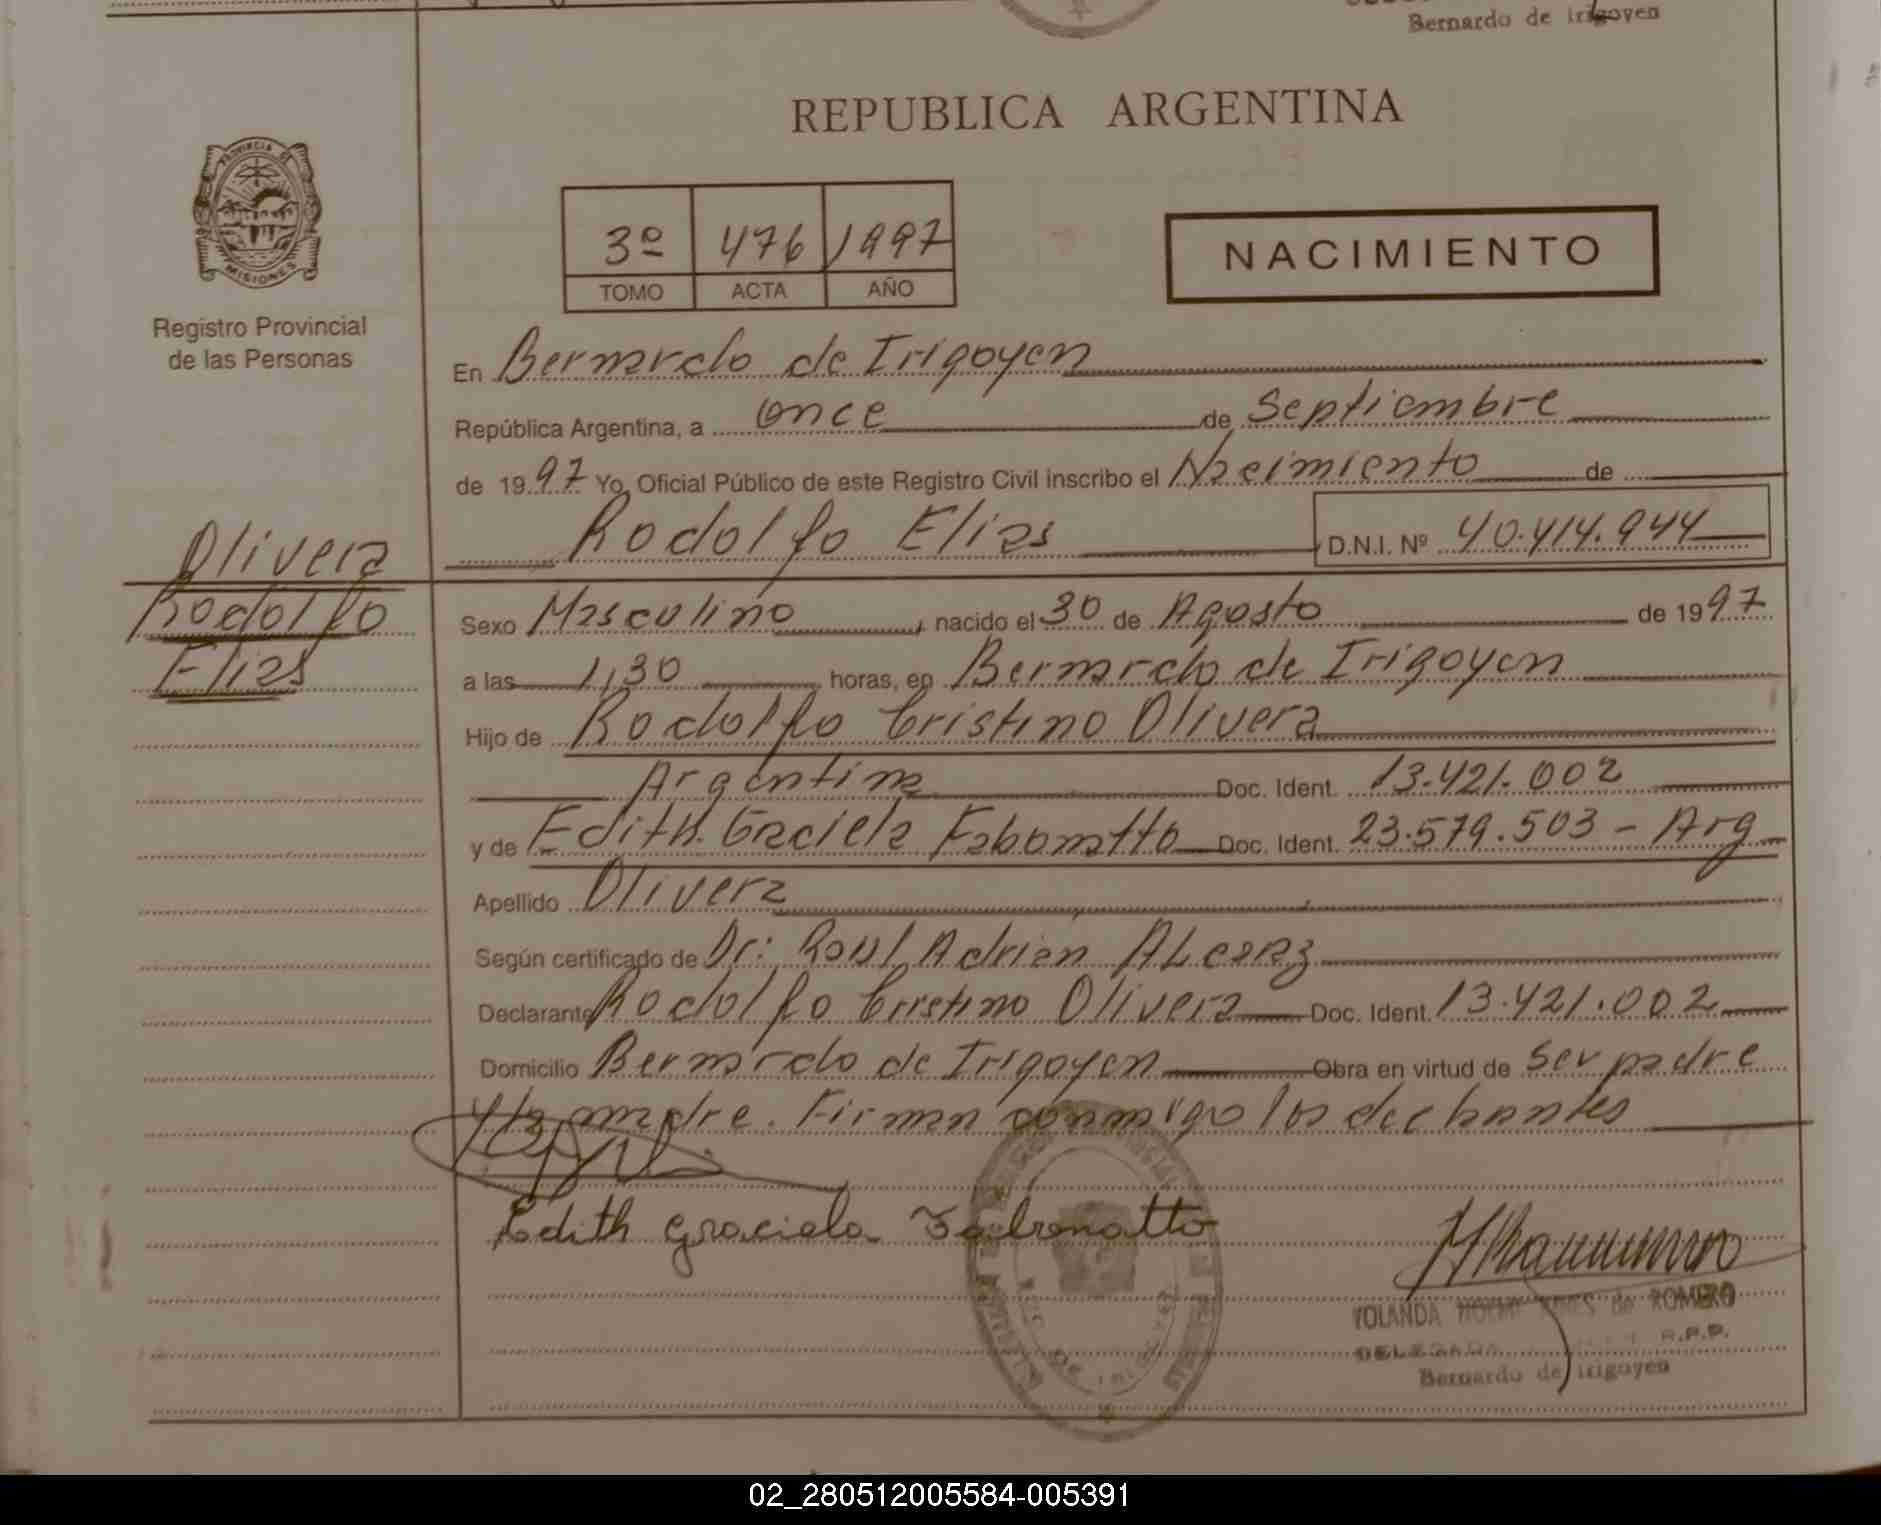 Bernardo de Irigoyen
REPUBLICA ARGENTINA
PROVINCIA DE
MISIONES
Registro Provincial
de las Personas
3º 476 1997
TOMO ACTA AÑO
NACIMIENTO
En Bernardo de Irigoyen
República Argentina, a once de Septiembre
de 1997 Yo, Oficial Público de este Registro Civil inscribo el Nacimiento de
Rodolfo Elias D.N.I. Nº 40.414.944
Olivera
Rodolfo
Elias
Sexo Masculino, nacido el 30 de Agosto de 1997
a las 1,30 horas, en Bernardo de Irigoyen
Hijo de Rodolfo Cristino Olivera
Argentina Doc. Ident. 13.421.002
y de Edith Graciela Fabonatto Doc. Ident. 23.579.503 - Arg
Apellido Olivera
Según certificado de Dr: Raul Adrian ALcaraz
Declarante Rodolfo Cristino Olivera Doc. Ident. 13.421.002
Domicilio Bernardo de Irigoyen Obra en virtud de ser padre
y la madre. Firman conmigo los
Edith Graciela
YOLANDA de ROMERO
DELEGADA R.P.P.
Bernardo de Irigoyen
02_280512005584-005391